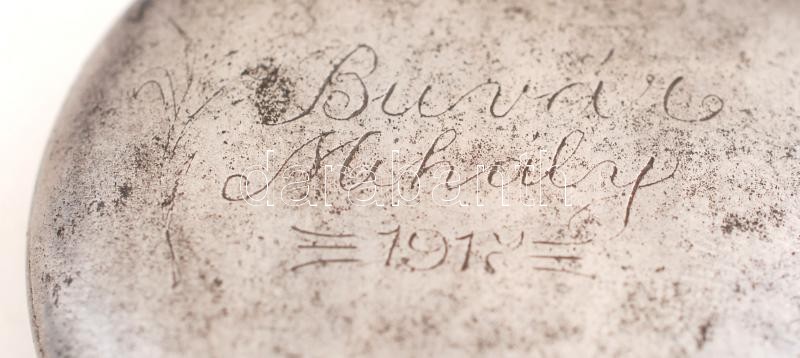 Buvár
Mihály
= 1917 =
darabanth